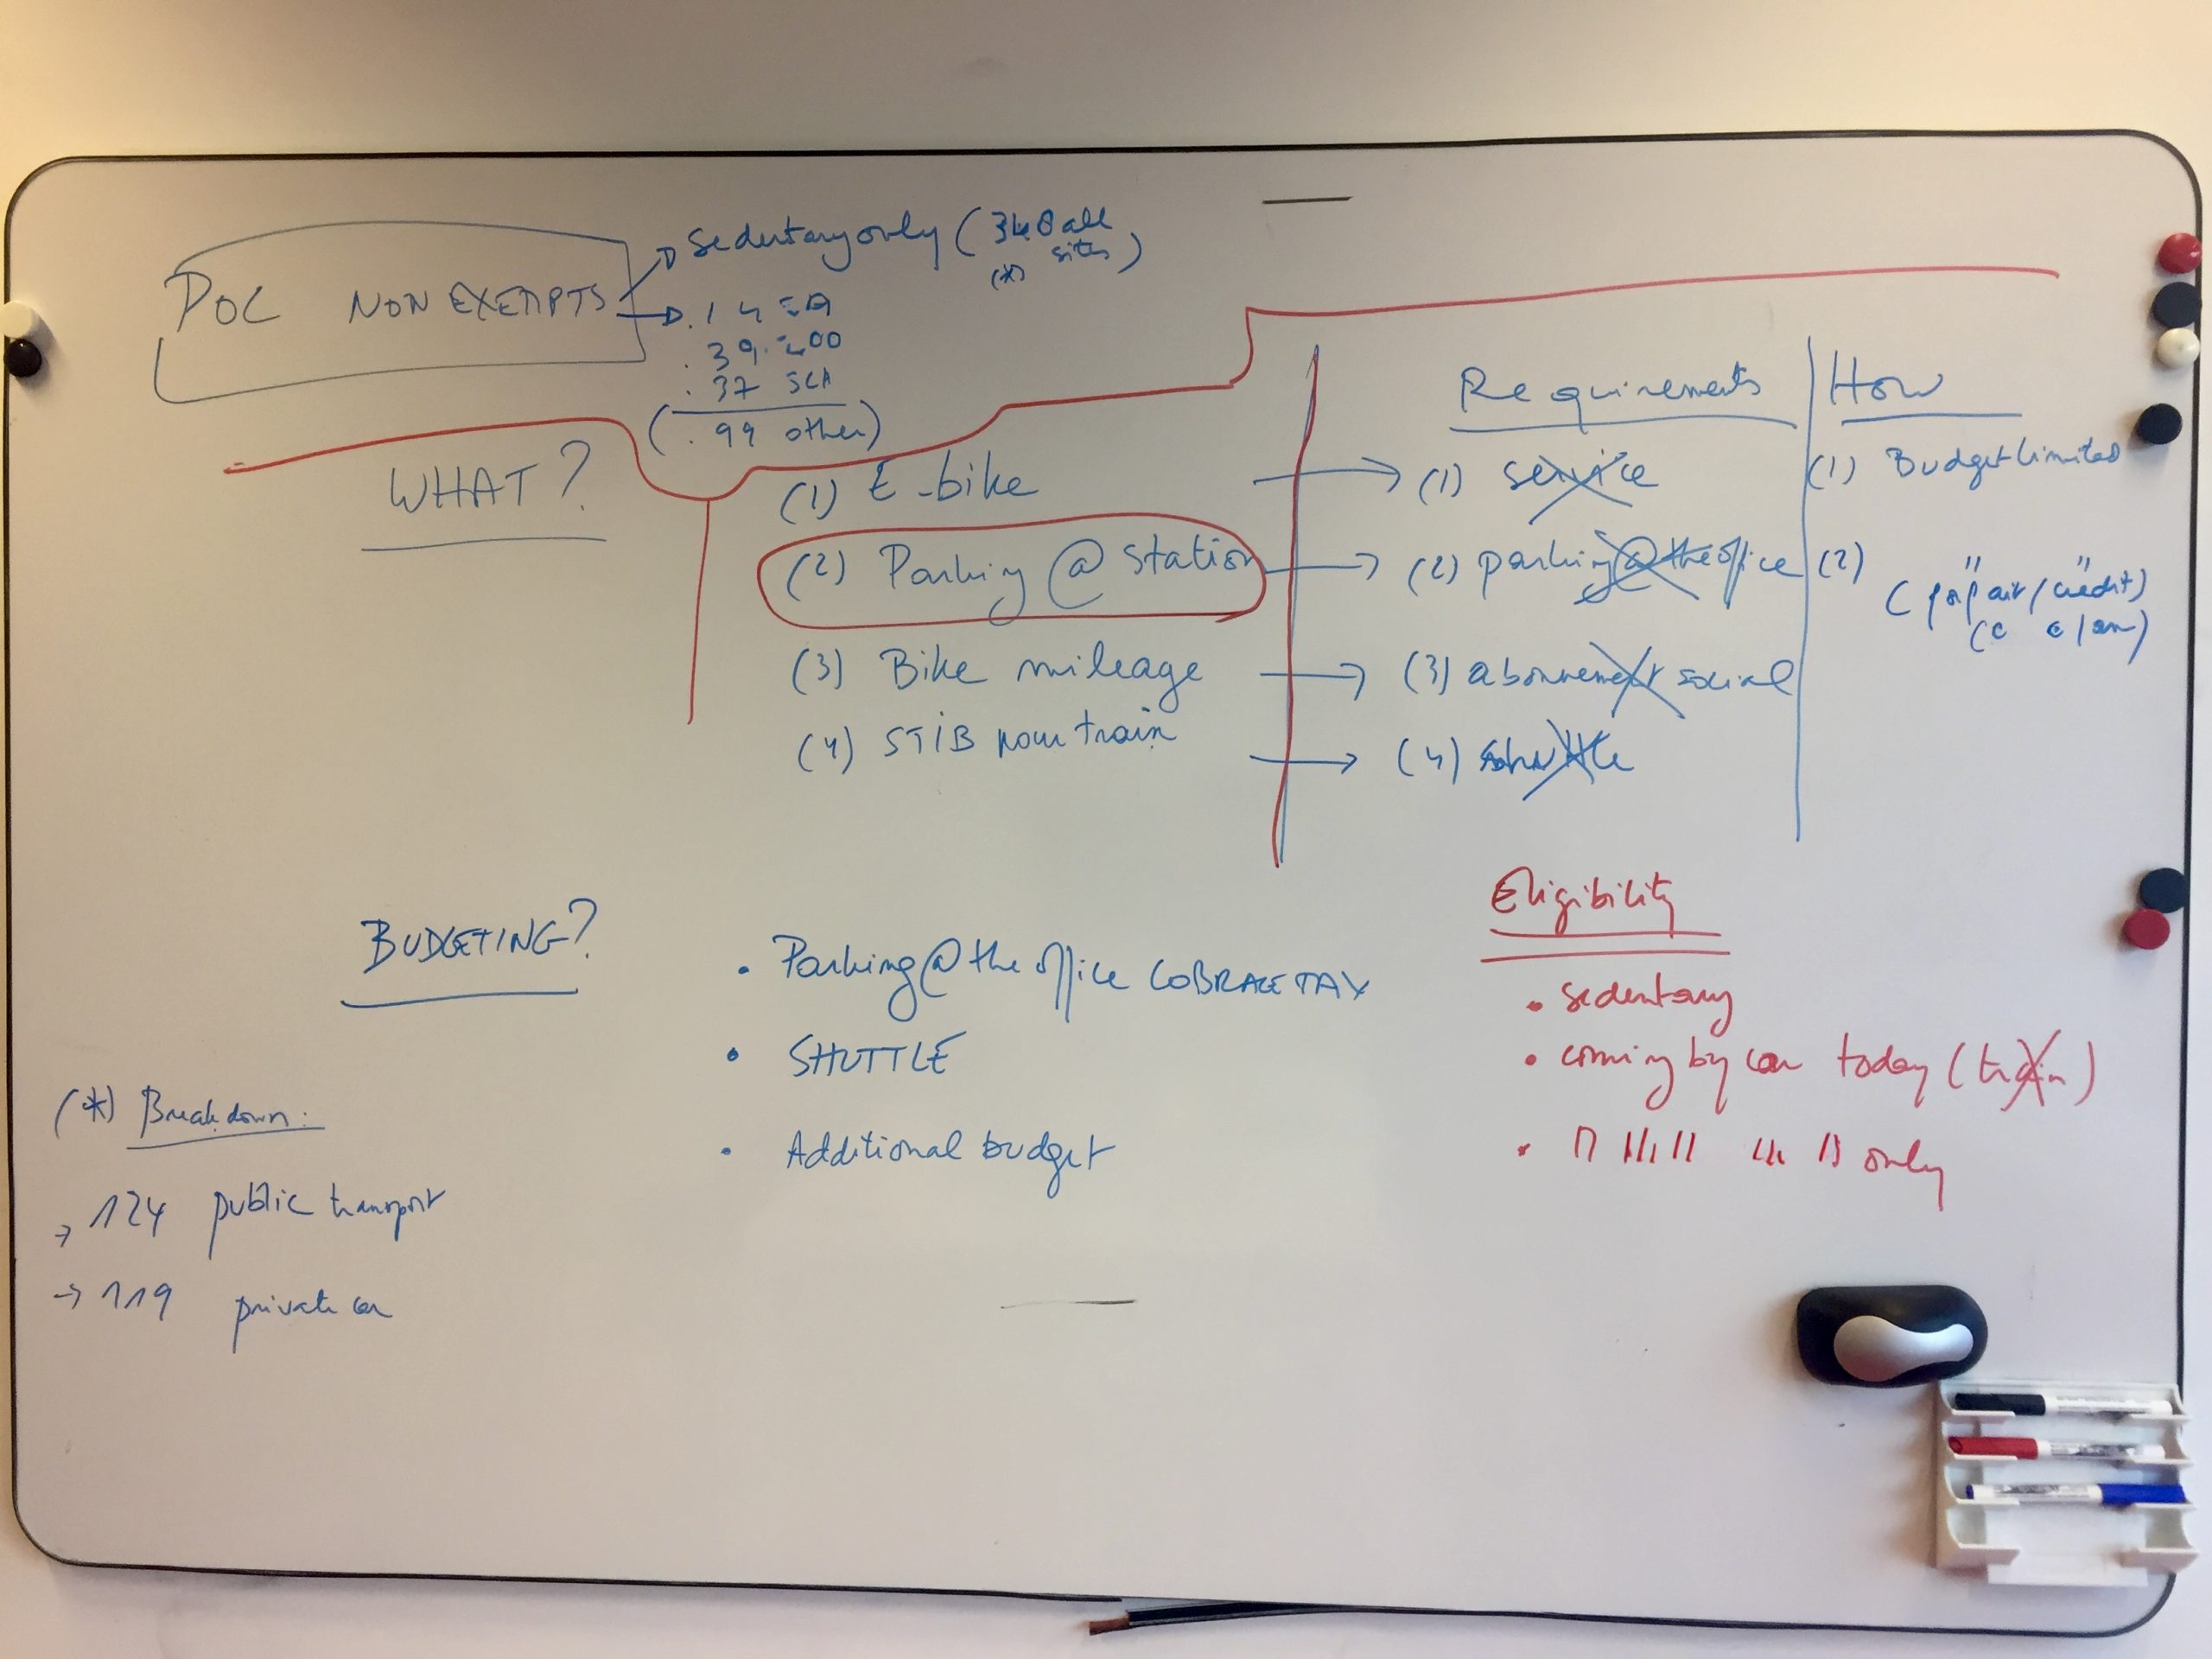 POC NON EXEMPTS
Sedentary only (348 all
sites)
(*)
. 39
. 37
(. 99 other)
WHAT?
(1) E-bike
(2) Parking @ Station
(3) Bike mileage
(4) STIB pour train
Requirements
(1) service
(2) parking @ the office
(3) abonnement social
(4) shuttle
How
(1) Budget limited
(2) " "
BUDGETING?
• Parking @ the office COBRACE TAX
• SHUTTLE
• Additional budget
Eligibility
• sedentary
• coming by car today (train)
• only
(*) Breakdown:
→ 124 public transport
→ 119 private car